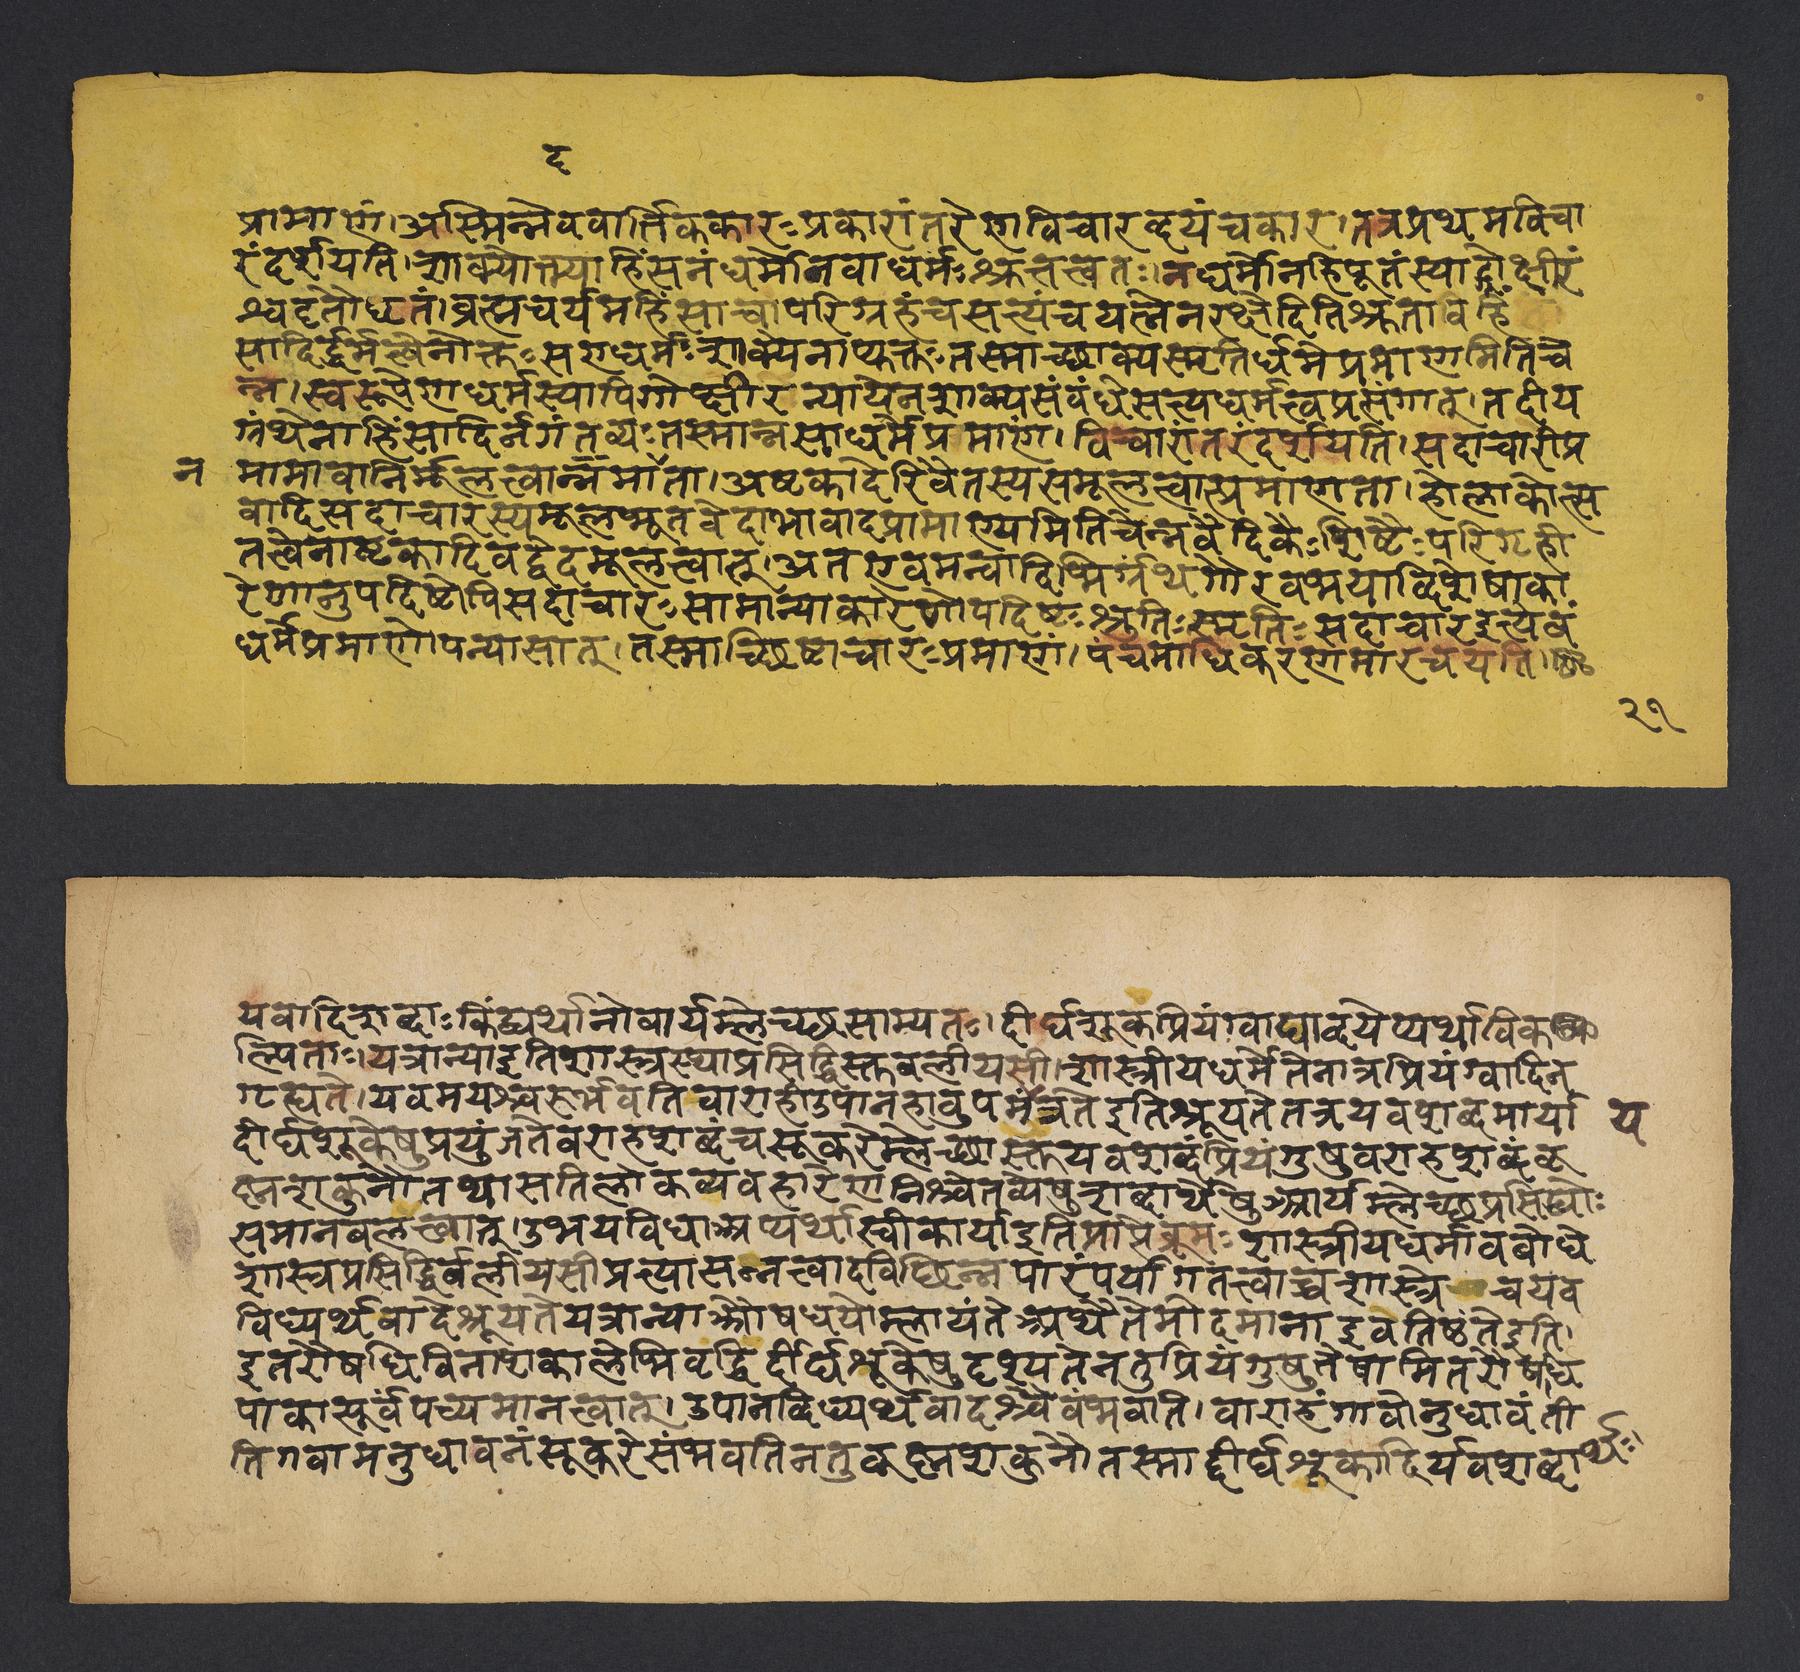 द
प्रामाण्यं। अस्मिन्नेववार्त्तिककारः प्रकारांतरेणविचारद्वयंचकार। तत्रप्रथमविचा
रंदर्शयति। शाक्योक्त्याहिंसनंधर्मोनवाधर्मः श्रुतत्वतः। नधर्मोनहिपूतंस्याद्गोक्षीरं
श्वदृतौधृतं। ब्रह्मचर्यमहिंसाचापरिग्रहंचसत्यंचयत्नेनरक्षेदितिश्रुतावहिं
सादिर्द्धर्मत्वेनोक्तः सएवधर्मः शाक्येनाप्युक्तः तस्माच्छाक्यस्मृतिर्धर्मेप्रमाणमितिचे
न्न। स्वरूपेणधर्मस्यापिगोक्षीरन्यायेनशाक्यसंबंधेसत्यधर्मत्वप्रसंगात्। तदीय
ग्रंथेनाहिंसादिर्नगंतव्यः तस्मान्नसाधर्मेप्रमाणं। विचारांतरंदर्शयति। सदाचारोप्र
न
मामावानिर्मूलत्वान्नमाता। अष्टकादेरिवैतस्यसमूलत्वात्प्रमाणता। होलाकोत्स
वादिसदाचारस्यमूलभूतवेदाभावादप्रामाण्यमितिचेन्नवैदिकैः शिष्टैः परिगृही
तत्वेनाष्टकादिवद्वेदमूलत्वात्। अतएवमन्वादिभिर्ग्रंथगौरवभयाद्विशेषाका
रेणानुपदिष्टोपिसदाचारः सामान्याकारेणोपदिष्टः श्रुतिः स्मृतिः सदाचारइत्येवं
धर्मेप्रमाणोपन्यासात्। तस्माच्छिष्टाचारः प्रमाणं। पंचमाधिकरणमारचयति।
२१
यवादिशब्दाः किंद्व्यर्थानोवार्यम्लेच्छसाम्यतः। दीर्घशूकप्रियंग्वाद्याद्वयेप्यर्थाविक
ल्पिताः। यत्रान्याइतिशास्त्रस्थाप्रसिद्धिस्तुबलीयसी। शास्त्रीयधर्मेतेनात्रप्रियंग्वादिन
गृह्यते। यवमयश्चरुर्भवतिवाराहीउपानहावुपमुंचतेइतिश्रूयतेतत्रयवशब्दमार्या
य
दीर्घशूकेषुप्रयुंजतेवराहशब्दंचसूकरेम्लेच्छास्तुयवशब्दंप्रियंगुषुवराहशब्दंकृ
ष्णशकुनौतथासतिलोकव्यवहारेणनिश्चेतव्येषुशब्दार्थेषुआर्यम्लेच्छप्रसिद्ध्योः
समानबलत्वात्। उभयविधाअप्यर्थास्वीकार्याइतिप्राप्तेब्रूमः शास्त्रीयधर्माववोधे
शास्त्रप्रसिद्धिर्बलीयसीप्रत्यासन्नत्वादविछिन्नपारंपर्यागतत्वाच्चशास्त्रेचयव
विध्यर्थवादेश्रूयतेयत्रान्याओषधयोम्लायंतेअथैतेमोदमानाइवतिष्ठंतेइति।
इतरौषधिविनाशकालेभिवृद्धिर्दीर्घशूकेषुदृश्यतेनतुप्रियंगुषुतेषामितरौषधि
पाकात्पूर्वंपच्यमानत्वात्। उपानद्विध्यर्थवादश्चैवंभवति। वाराहंगावोनुधावंती
तिगवामनुधावनंसूकरेसंभवतिनतुकृष्णशकुनौतस्माद्दीर्घशूकादिर्यवशब्दार्थः।